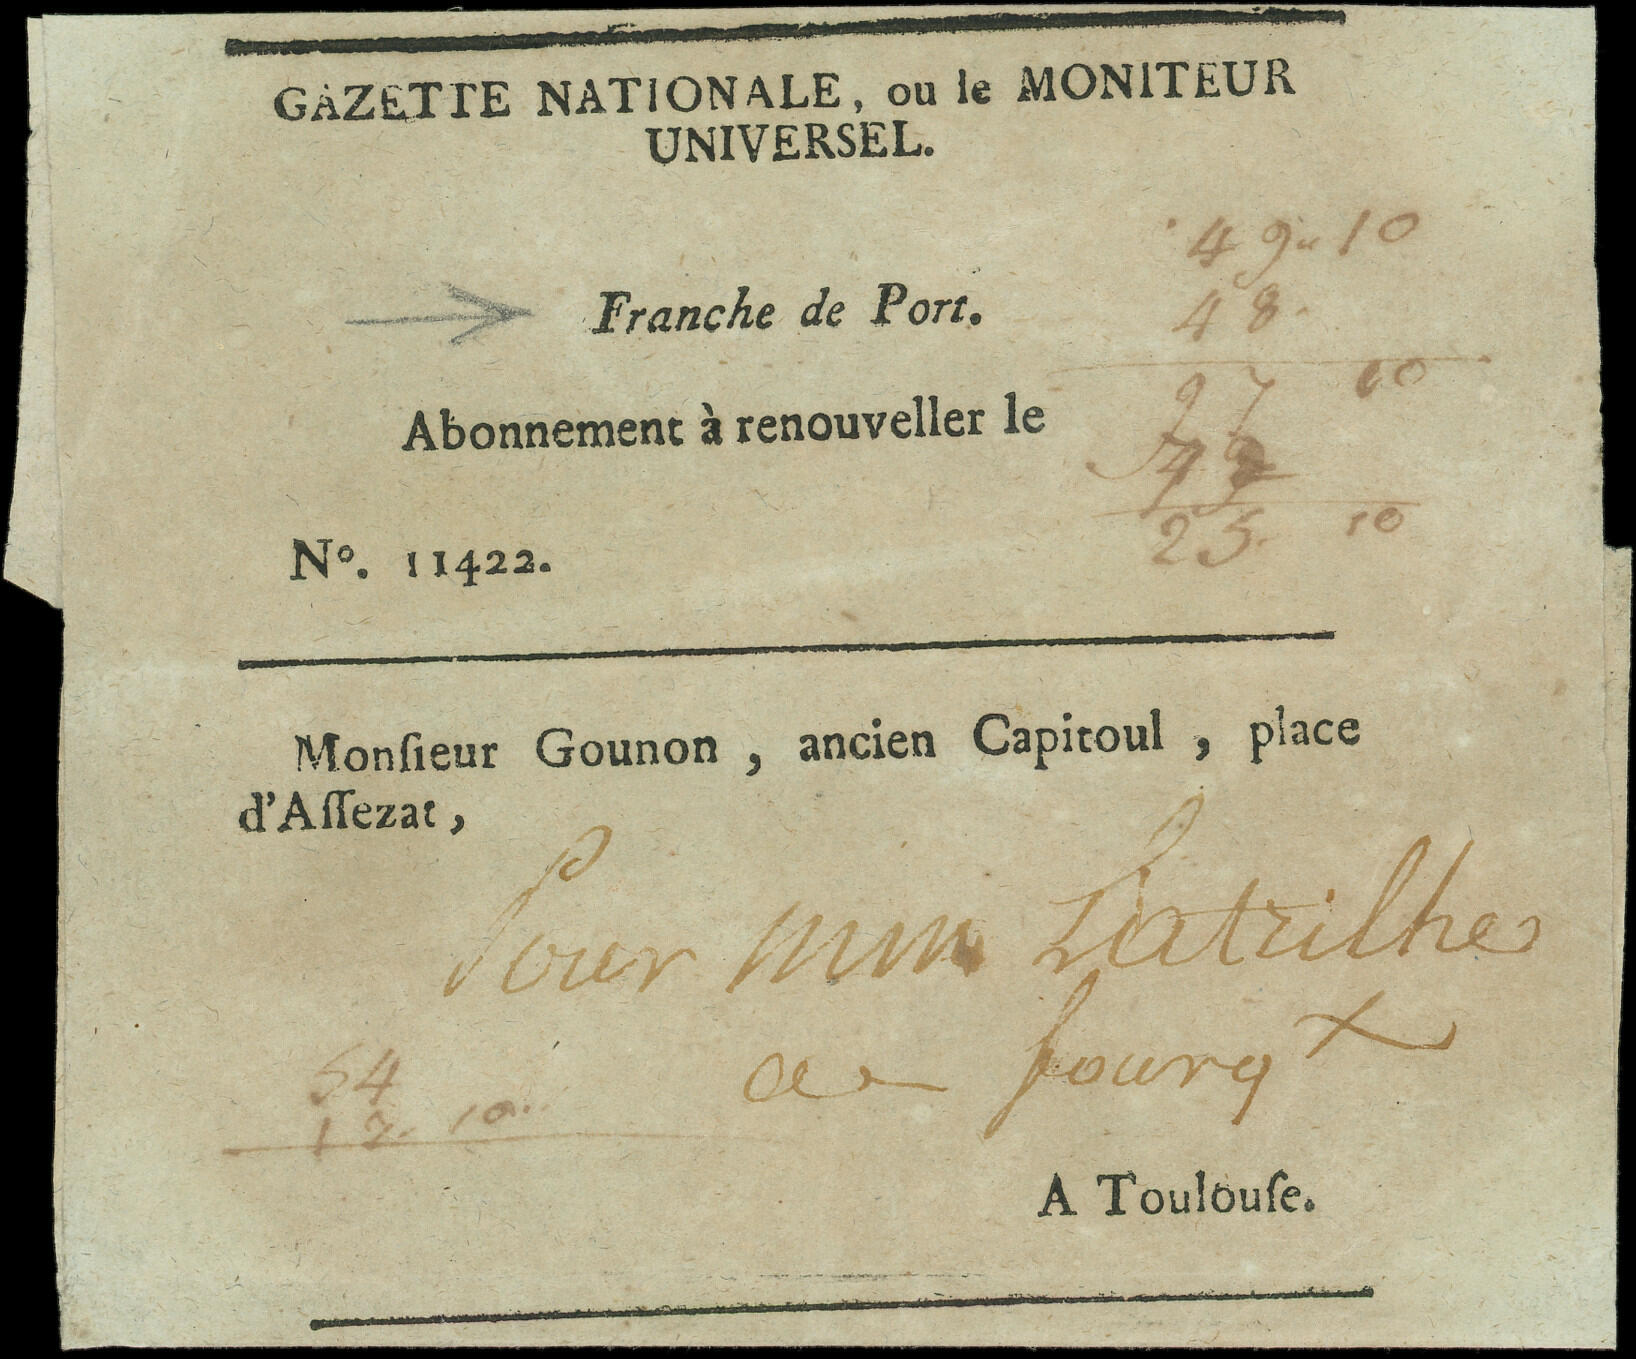 GAZETTE NATIONALE, ou le MONITEUR
UNIVERSEL.
49 10
Franche de Port.
48.
97 10
Abonnement à renouveller le
25. 10
N°. 11422.
Monſieur Gounon, ancien Capitoul, place
d'Aſſezat,
Pour Latrilhe
54
10
A Toulouſe.